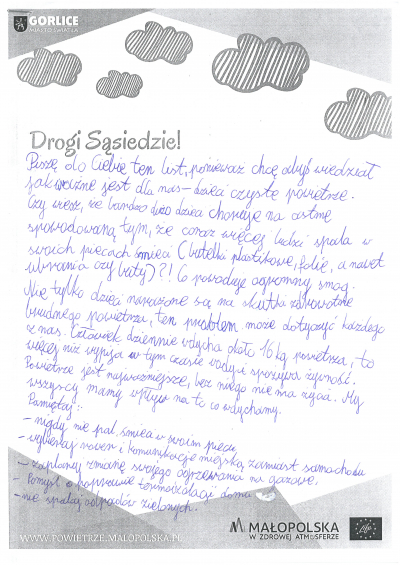 GORLICE
MIASTO ŚWIATŁA
Drogi Sąsiedzie!
Piszę do Ciebie ten list, ponieważ chcę abyś wiedział
jak ważne jest dla nas - dzieci czyste powietrze.
Czy wiesz, że bardzo dużo dzieci choruje na astmę
spowodowaną tym, że coraz więcej ludzi spala w
swoich piecach śmieci (butelki plastikowe, folie, a nawet
ubrania czy buty)?! Co powoduje ogromny smog.
Nie tylko dzieci narażone są na skutki zdrowotne
brudnego powietrza, ten problem może dotyczyć każdego
z nas. Człowiek dziennie wdycha około 16 kg powietrza, to
więcej niż wypija w tym czasie wody i spożywa żywność.
Powietrze jest najważniejsze, bez niego nie ma życia. My
wszyscy mamy wpływ na to co wdychamy.
Pamiętaj:
- nigdy nie pal śmieci w swoim piecu
- wybieraj rower i komunikację miejską zamiast samochodu
- zaplanuj zmianę swojego ogrzewania na gazowe.
- Pomyśl o poprawie termoizolacji domu
- nie spalaj odpadów zielonych.
WWW.POWIETRZE.MALOPOLSKA.PL
MAŁOPOLSKA
W ZDROWEJ ATMOSFERZE
Life